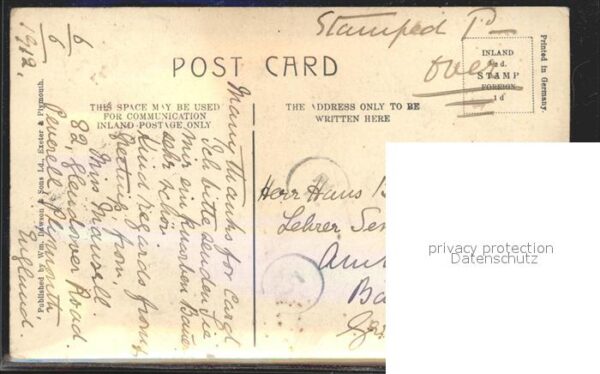 Stamped P
over
INLAND
½d.
STAMP
FOREIGN
1d
Printed in Germany.
POST CARD
THIS SPACE MAY BE USED
FOR COMMUNICATION
INLAND POSTAGE ONLY
THE ADDRESS ONLY TO BE
WRITTEN HERE
6/6
1912.
Many thanks for card
Ich bitte senden Sie
mir ein
sehr schön
kind regards from
from,
Miss Maxwell.
82, Glendower Road
Peverell, Plymouth
England.
Herr Hans B
Lehrer Sem
Am
Ba
Ger
Published by Wm. Dawson & Sons Ld., Exeter & Plymouth.
privacy protection
Datenschutz